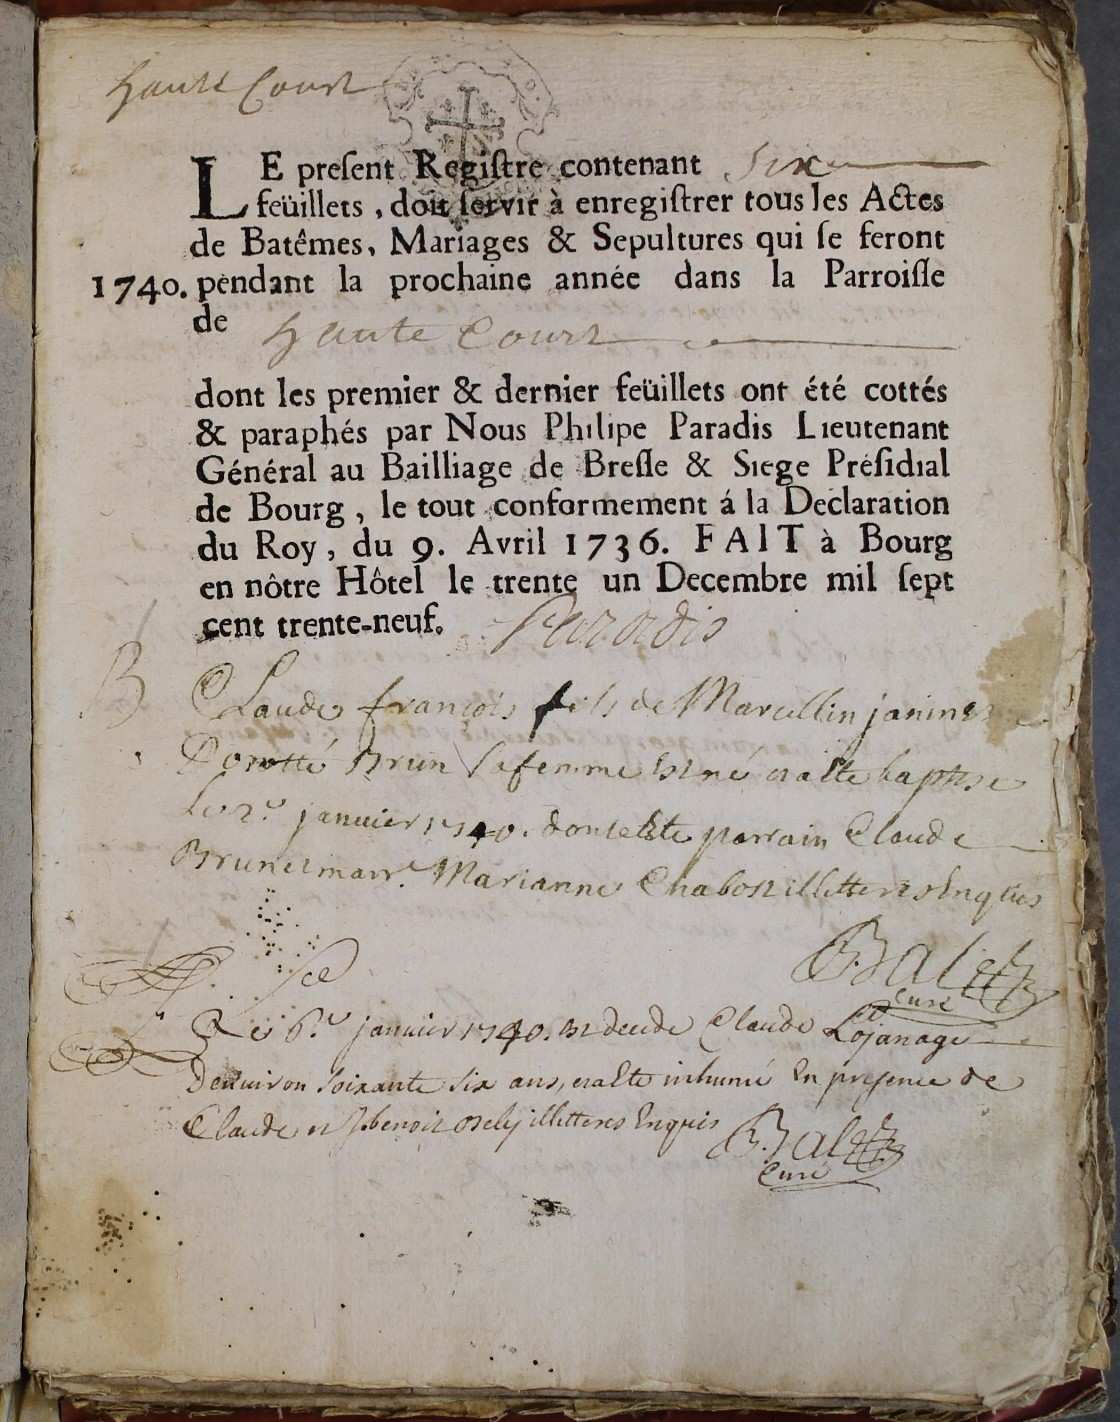 haute Court
LE preſent Regiſtre contenant Six
feüillets, doit ſervir à enregiſtrer tous les Actes
de Batêmes, Mariages & Sepultures qui ſe feront
1740. pendant la prochaine année dans la Parroiſſe
de haute Court
dont les premier & dernier feüillets ont été cottés
& paraphés par Nous Philipe Paradis Lieutenant
Général au Bailliage de Breſſe & Siege Préſidial
de Bourg, le tout conformement á la Declaration
du Roy, du 9. Avril 1736. FAIT à Bourg
en nôtre Hôtel le trente un Decembre mil ſept
cent trente-neuf. Paradis
B Claude françois fils de Marcellin janin et
Dorotté Brun Sa femme est né et a este baptise
le 2.e janvier 1740. dont este parrain Claude
Brun et marr.e Marianne Chabot illitteres Enquis
Balet
curé
Sce
Le 6.e janvier 1740. est decede Claude
Denviron Soixante Six ans, et a este inhumé En presence de
Claude et benoit illitteres Enquis Balet
Curé